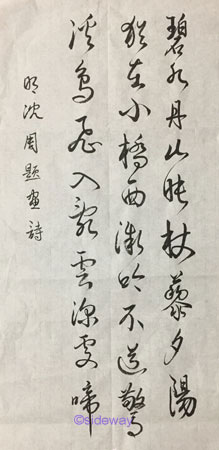 碧水丹山映杖藜夕陽
猶在小橋西微吟不道驚
溪鳥飛入亂雲深處啼
明沈周題畫詩
©sideway